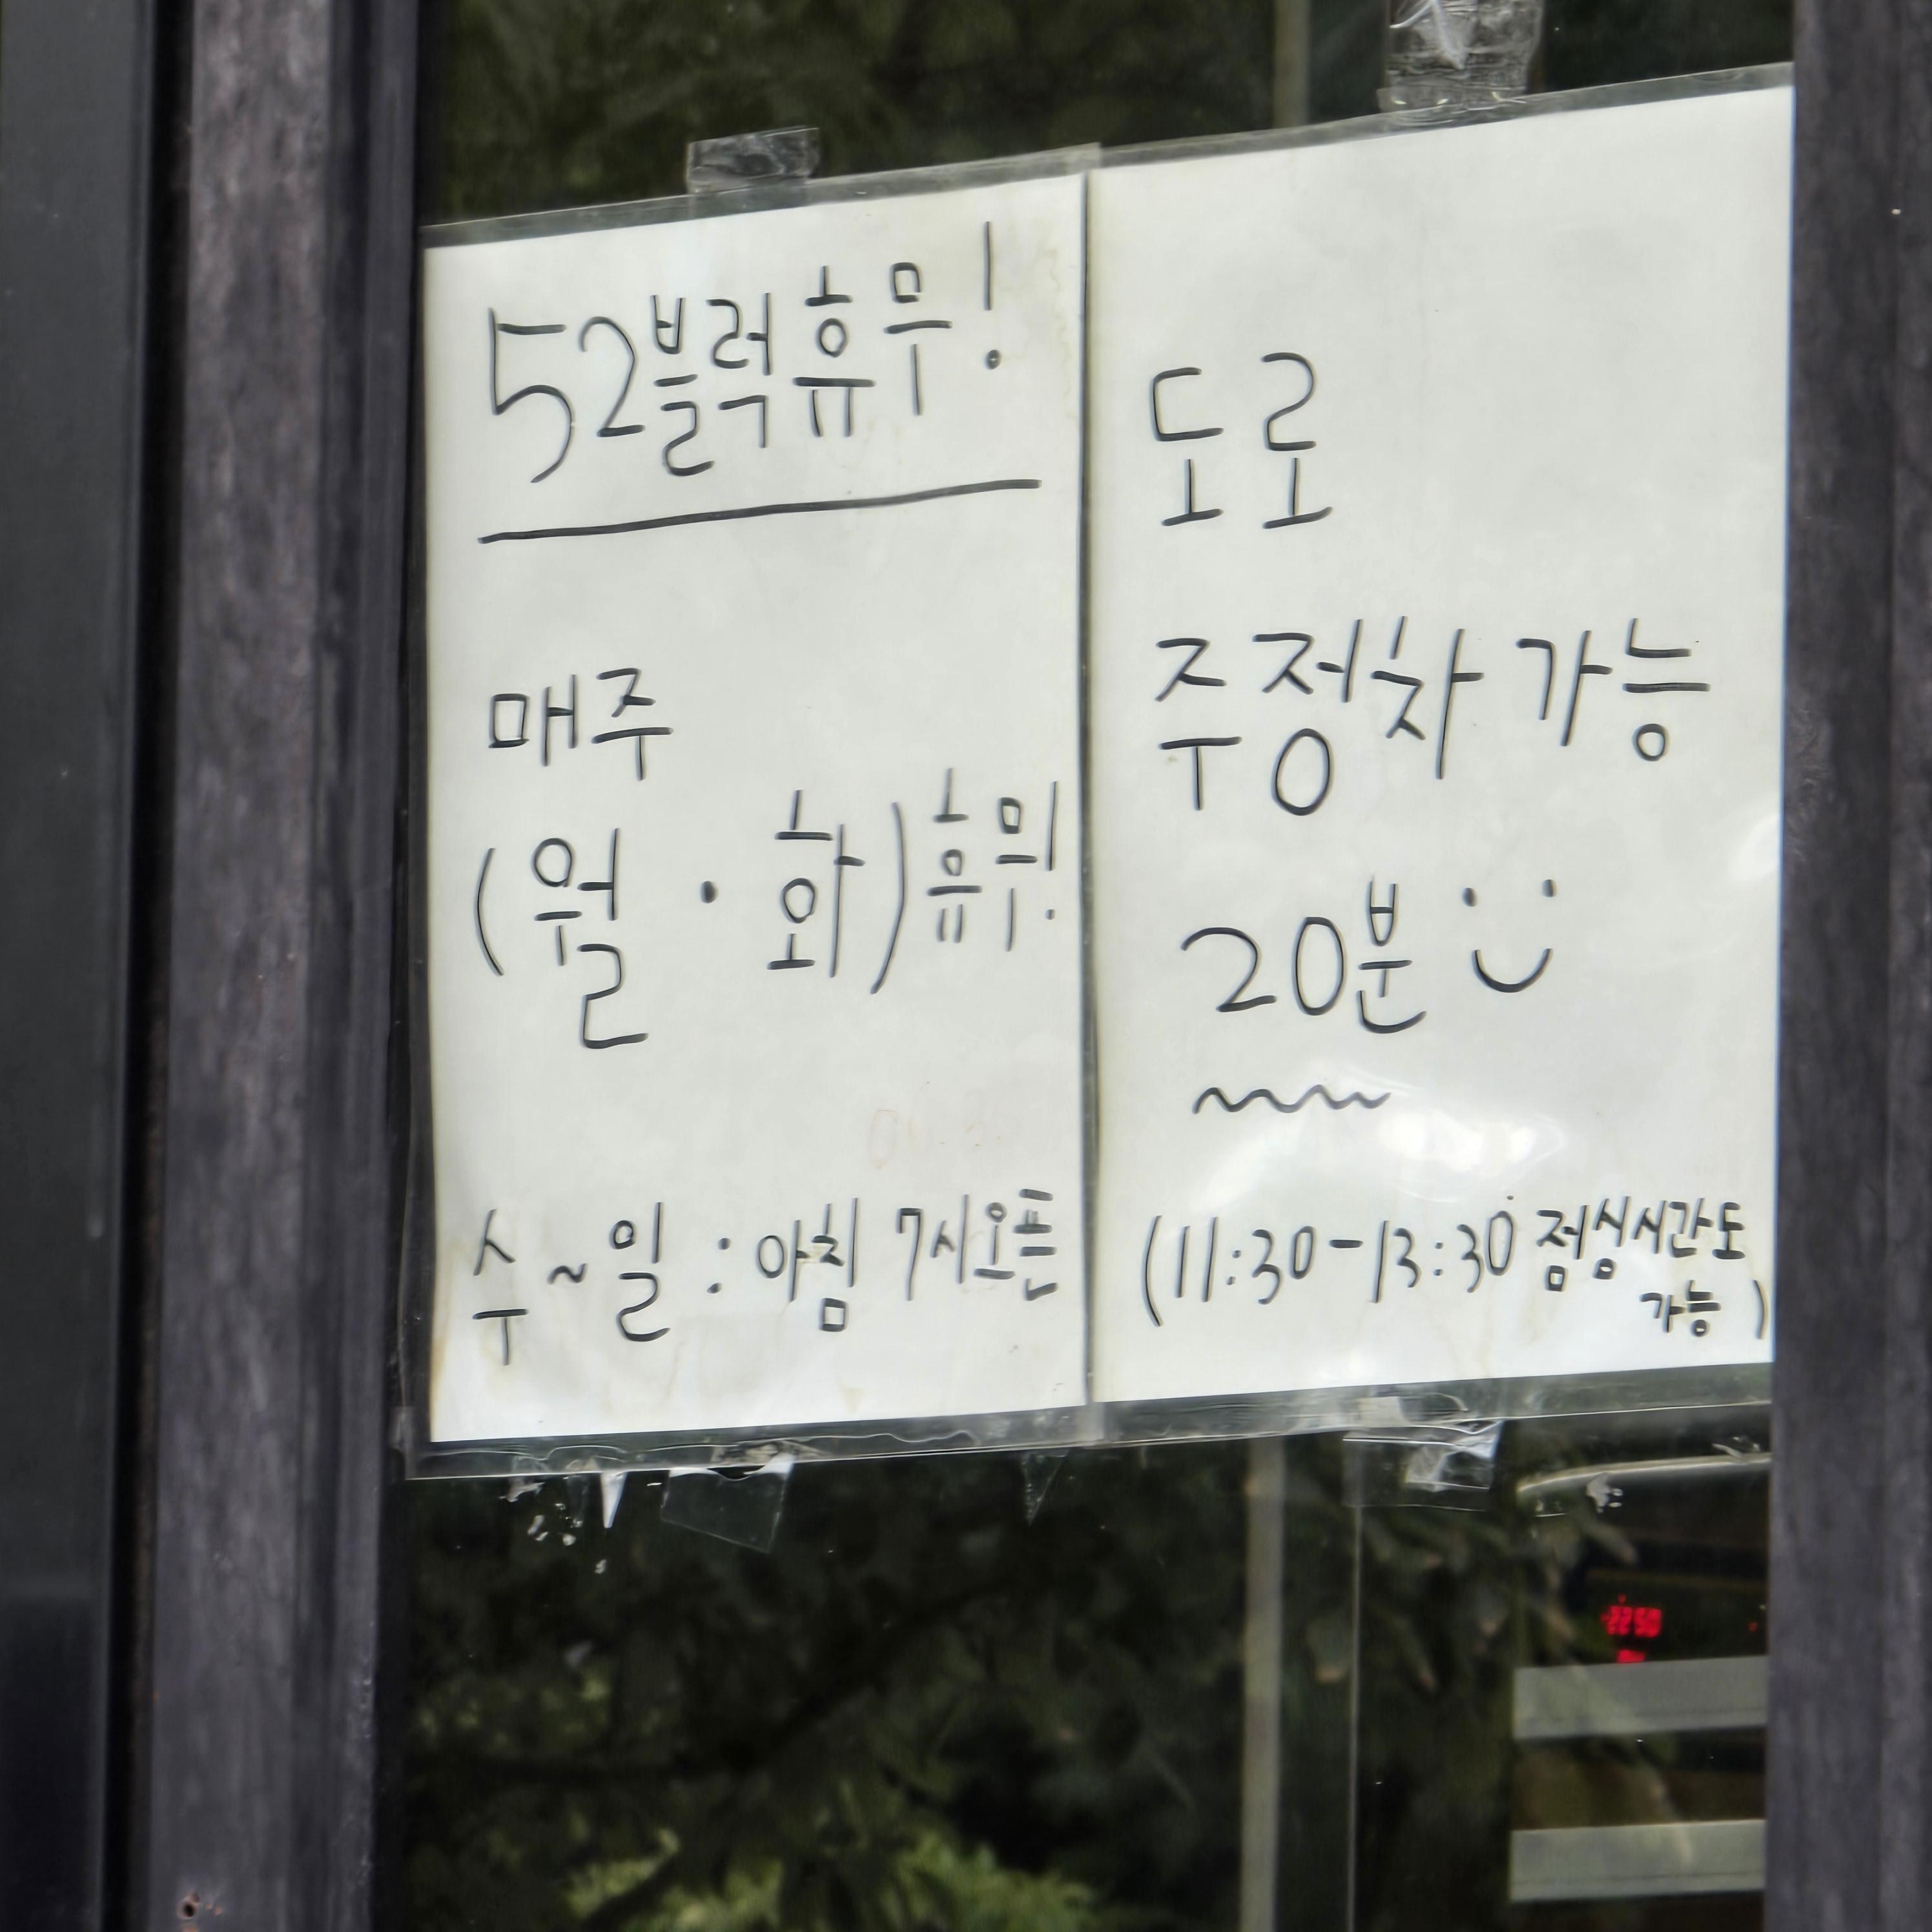 52블럭 휴무!
매주
(월 · 화) 휴무!
수 ~ 일 : 아침 7시 오픈
도로
주정차 가능
20분
(11:30-13:30 점심시간도
가능)